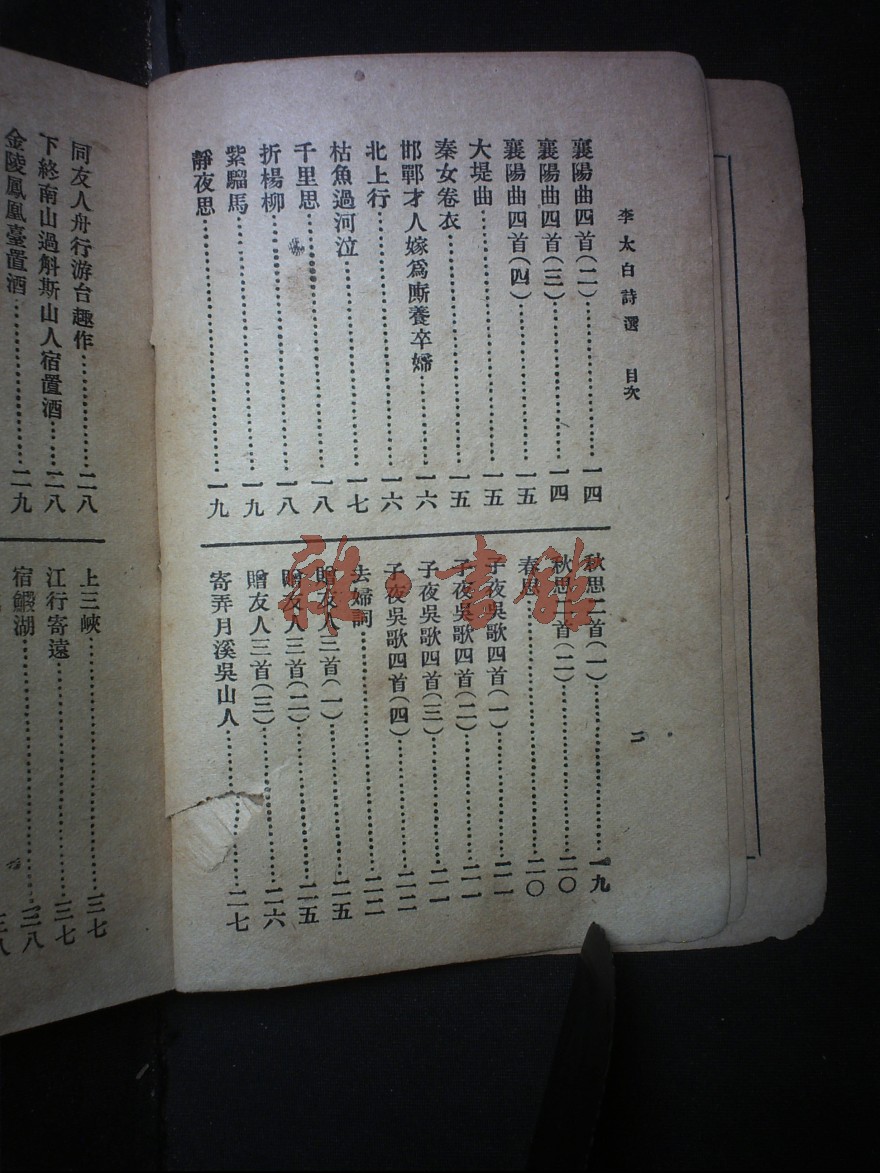 李太白詩選 目次
二
襄陽曲四首(二)……一四
襄陽曲四首(三)……一四
襄陽曲四首(四)……一五
大堤曲……一五
秦女卷衣……一五
邯鄲才人嫁爲廝養卒婦……一六
北上行……一六
枯魚過河泣……一七
千里思……一八
折楊柳……一八
紫騮馬……一九
靜夜思……一九
秋思二首(一)……一九
秋思二首(二)……二〇
春思……二〇
子夜吳歌四首(一)……二一
子夜吳歌四首(二)……二一
子夜吳歌四首(三)……二一
子夜吳歌四首(四)……二二
去婦詞……二二
贈友人三首(一)……二五
贈友人三首(二)……二五
贈友人三首(三)……二六
寄弄月溪吳山人……二七
同友人舟行游台趣作……二八
下終南山過斛斯山人宿置酒……二八
金陵鳳凰臺置酒……二九
上三峽……三七
江行寄遠……三七
宿鰕湖……三八
三八
雜·書館